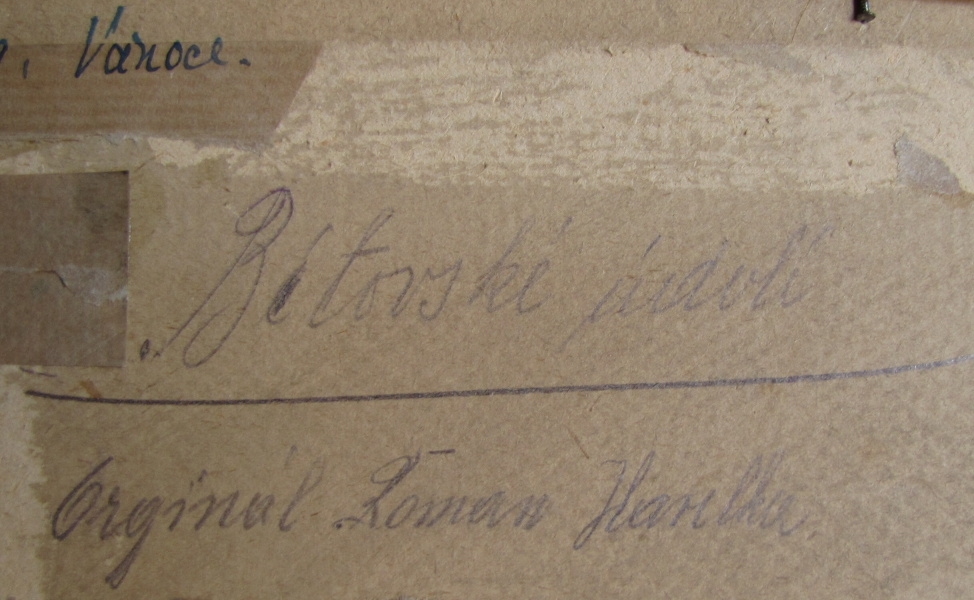 . Vánoce.
„Bítovské údolí"
Orginál Roman Havelka.